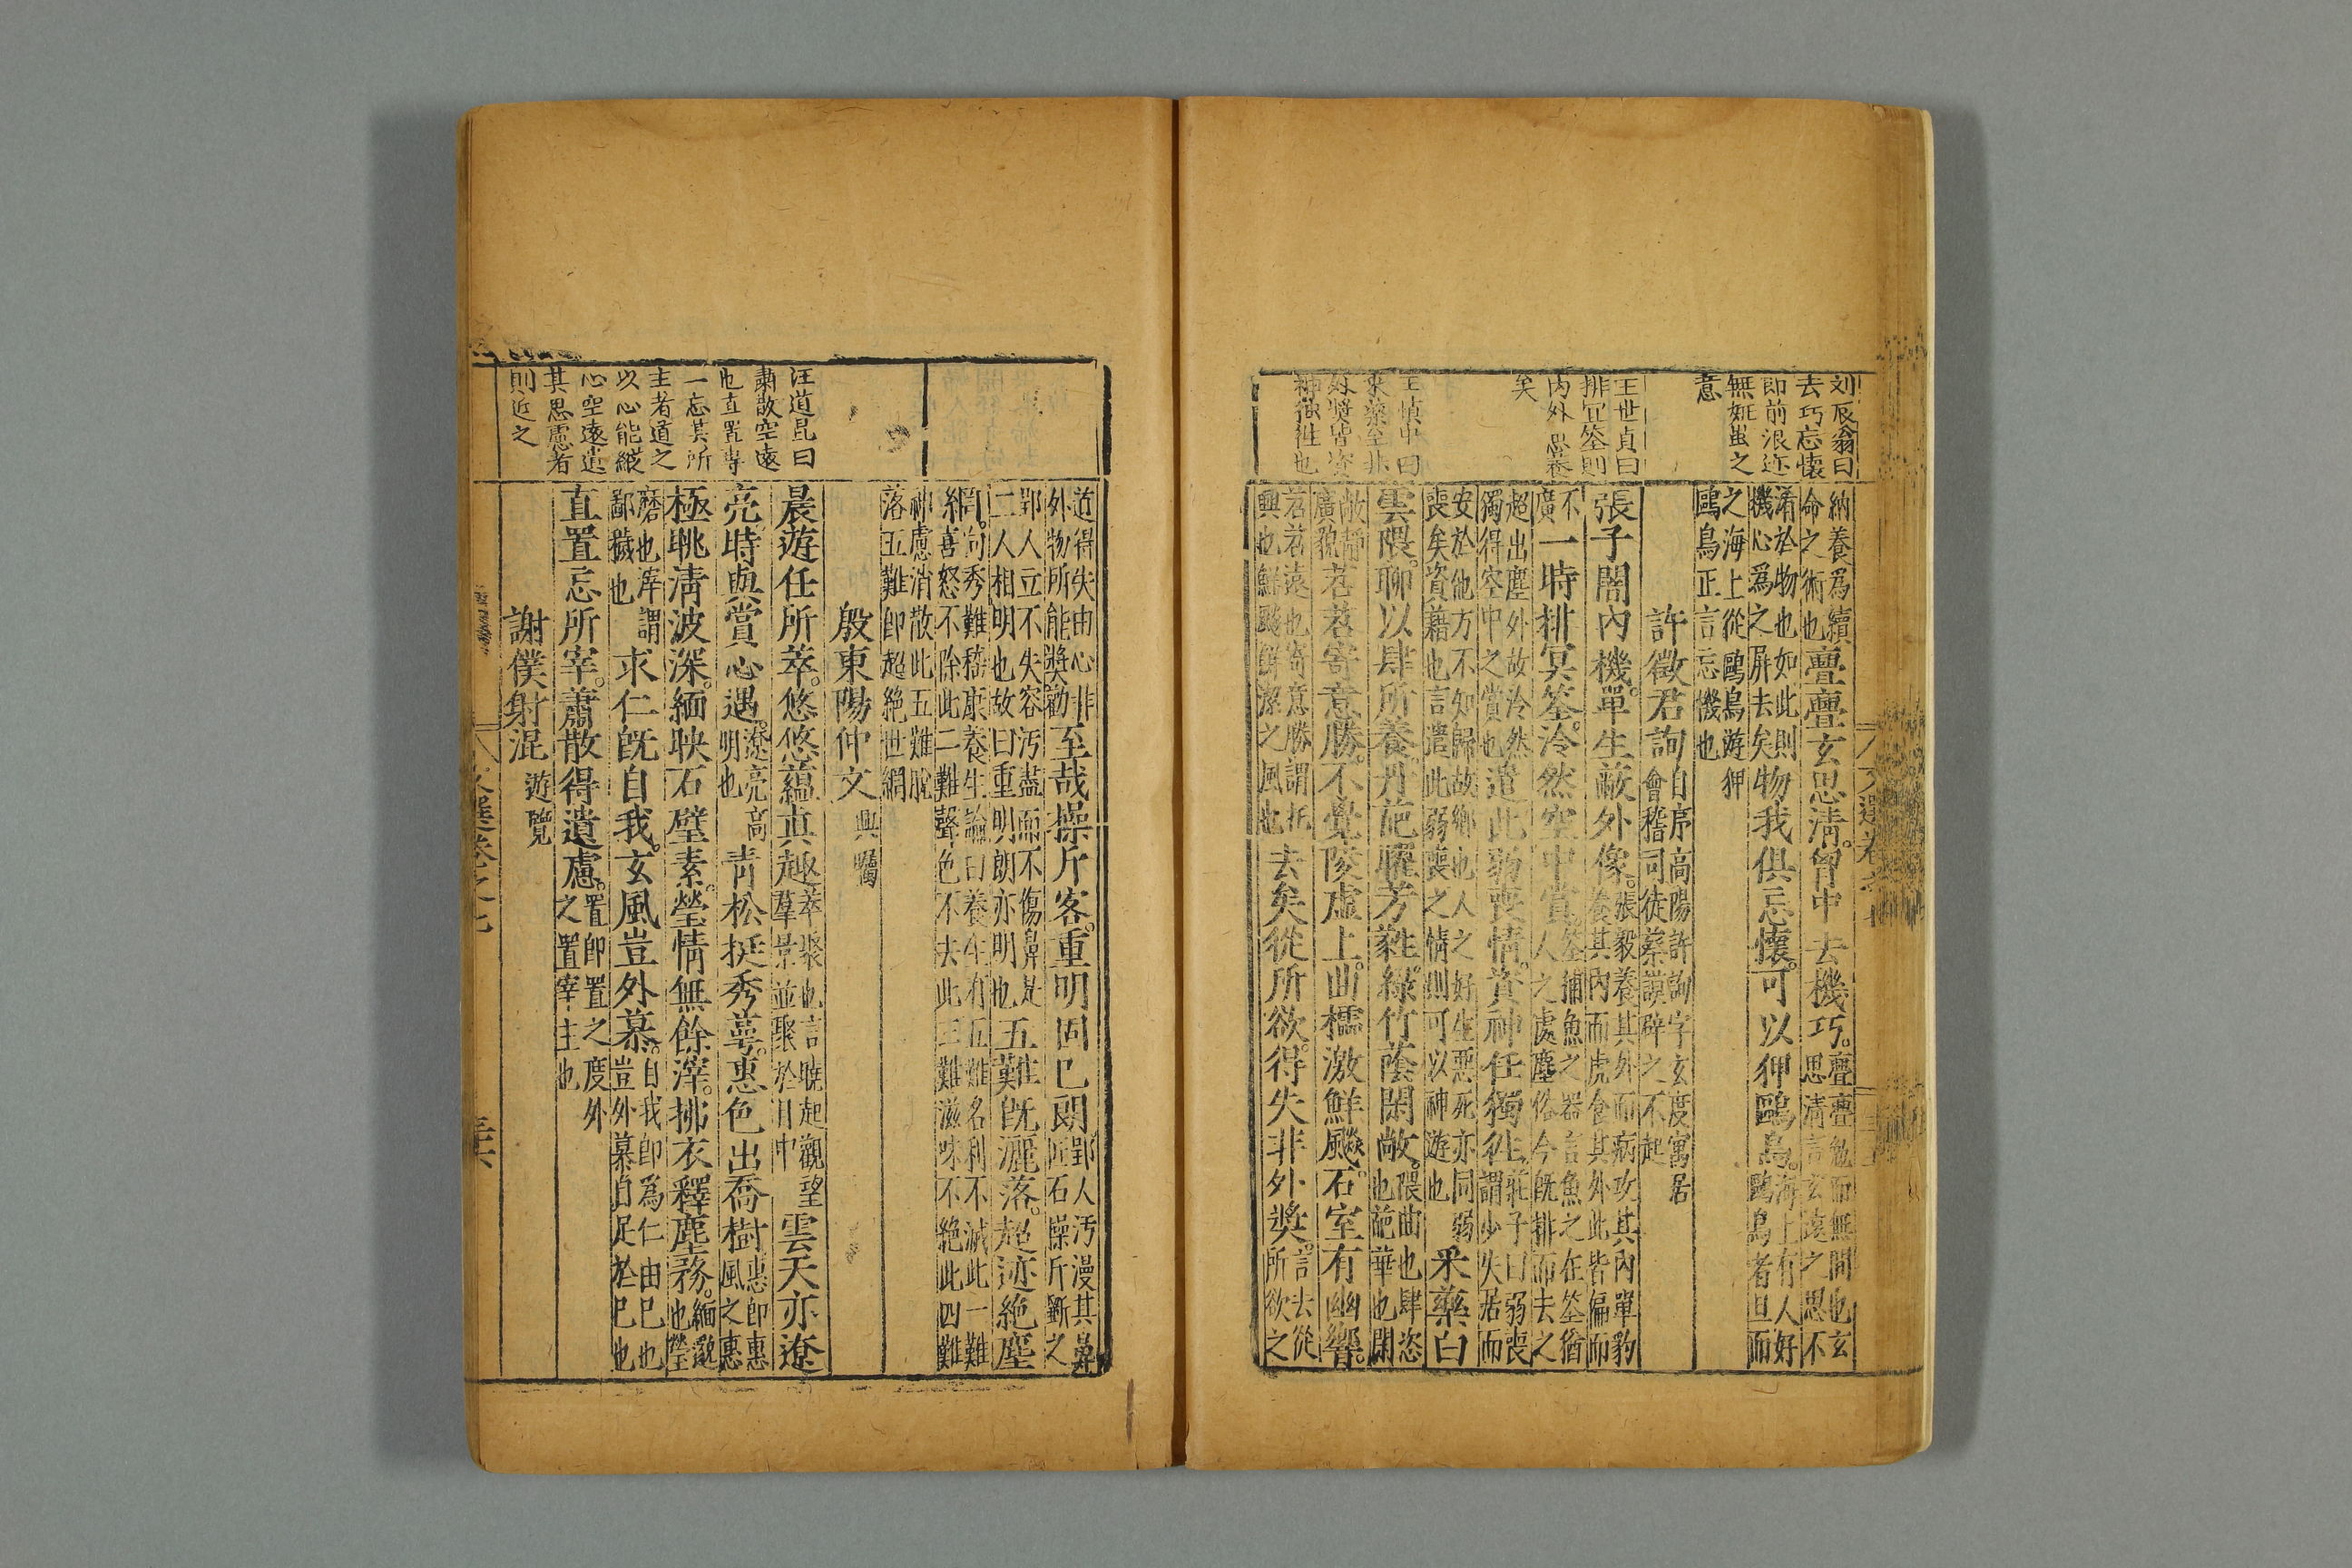 刘辰翁曰
去巧忘懷
即前泯迹
無姃蚩之
意
王世貞曰
排冥筌則
内外忘養
矣
王慎中曰
采藥至非
外奬皆資
神獨徃也
納養爲續
命之術也
亹亹玄思淸胷中去機巧
亹亹勉而無間也玄
思清言玄遠之思不
淆於物也如此則
機心爲之屏去矣
物我俱忘懷可以狎鷗鳥
海上有人好
鷗鳥者旦而
之海上從鷗鳥遊狎
鷗鳥正言忘機也
許徵君詢
自序高陽許詢字玄度寓居
會稽司徒蔡謨辟之不起
張子闇內機單生蔽外像
張毅養其外而病攻其內單豹
養其内而虎食其外此皆偏而
不
廣
一時排冥筌泠然空中賞
筌捕魚之器言魚之在筌猶
人之處塵俗今旣排而去之
超出塵外故泠然
獨得空中之賞也
遣此弱喪情資神任獨徃
莊子曰弱喪
謂少失居而
安於他方不知歸故鄉也人之好生惡死亦同弱
喪矣資藉也言遣此弱喪之情則可以神遊也
采藥白
雲隈聊以肆所養丹葩曜芳蕤綠竹蔭閑敞
隈曲也肆恣
也葩華也閑
敞靜
廣貌
苕苕寄意勝不覺陵虛上曲櫺激鮮飈石室有幽響
苕苕遠也寄意勝謂托
興也鮮飈鮮潔之風也
去矣從所欲得失非外奬
言去從
所欲之
道得失由心非
外物所能奬勸
至哉操斤客重明固已朗
郢人汚漫其鼻
匠石操斤斲之
郢人立不失容汚盡而不傷鼻是
二人相明也故曰重明朗亦明也
五難旣灑落超迹絶塵
網
向秀難嵇康養生論曰養生有五難名利不滅此一難
喜怒不除此二難聲色不去此三難滋味不絶此四難
神慮消散此五難脫
落五難卽超絶世網
殷東陽仲文
興矚
晨遊任所萃悠悠蘊眞趣
萃聚也言晓起觀望
羣景並聚於目中
雲天亦遼
亮時與賞心遇
遼亮高
明也
青松挺秀蕚惠色出喬樹
惠卽惠
風之惠
極眺清波深緬映石壁素瑩情無餘滓拂衣釋塵務
緬邈
也瑩
磨也滓謂
鄙穢也
求仁旣自我玄風豈外慕
自我卽爲仁由巳也
豈外慕自足於巳也
直置忘所宰蕭散得遺慮
置卽置之度外
之置宰主也
謝僕射混
遊覽
汪道昆曰
肅散空遠
也直置専
一忘其所
主者道之
以心能縱
心空遠遣
其思慮者
則近之